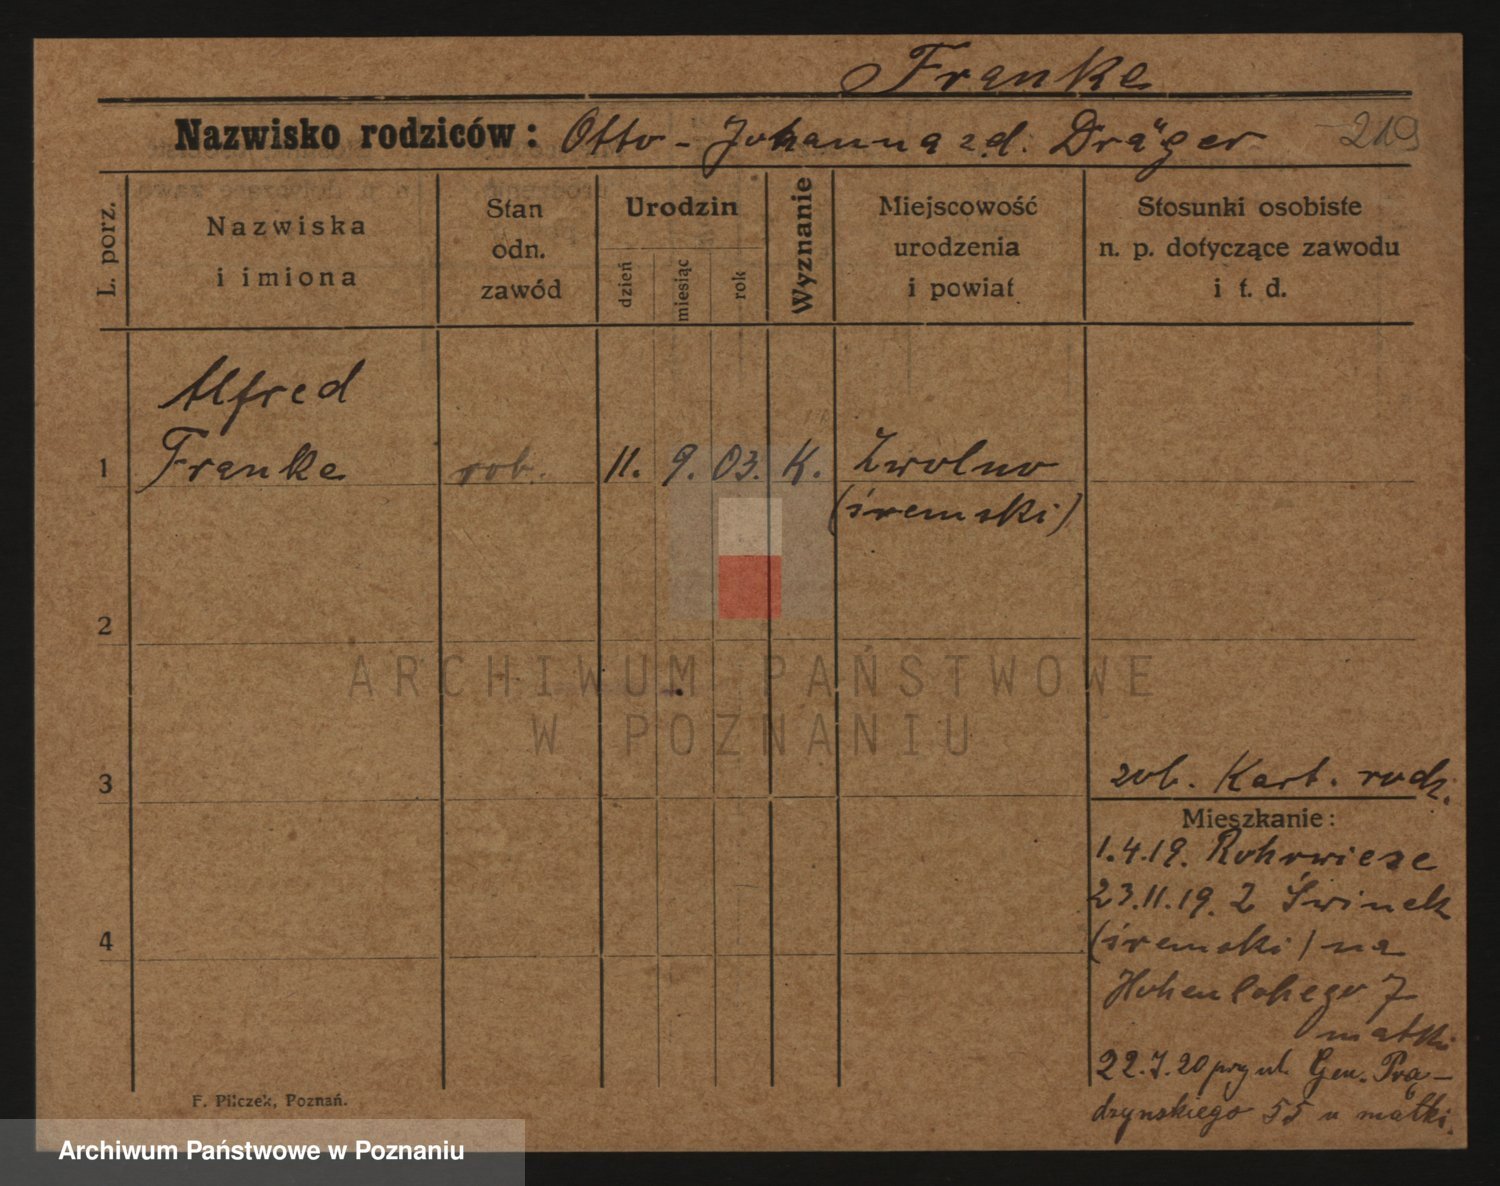 Franke
Nazwisko rodziców: Otto - Johanna z d. Dräger 219
L. porz.
Nazwiska
i imiona
Stan
odn.
zawód
Urodzin
dzień
miesiąc
rok
Wyznanie
Miejscowość
urodzenia
i powiat
Stosunki osobiste
n. p. dotyczące zawodu
i t. d.
Alfred
1 Franke rob. 11. 9. 03. K. Zwolno
(śremski)
2
ARCHIWUM PAŃSTWOWE
W POZNANIU
3
zob. Kart. rodz.
Mieszkanie:
1.4.19. Rohrwiese
23.11.19. Z Świnek
4
(śremski) na
Hohenlohego 7
matki
22.7.20 przy ul. Gen. Prą-
dzynskiego 55 u matki.
F. Pilczek, Poznań.
Archiwum Państwowe w Poznaniu